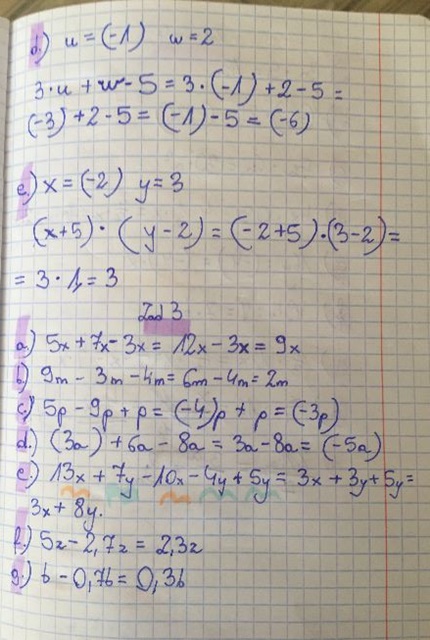 d.) u = (-1) w = 2
3·u + w - 5 = 3·(-1) + 2 - 5 =
(-3) + 2 - 5 = (-1) - 5 = (-6)
e.) x = (-2) y = 3
(x+5) · (y-2) = (-2+5)·(3-2) =
= 3 · 1 = 3
Zad 3
a.) 5x + 7x - 3x = 12x - 3x = 9x
b.) 9m - 3m - 4m = 6m - 4m = 2m
c.) 5p - 9p + p = (-4)p + p = (-3p)
d.) (3a) + 6a - 8a = 3a - 8a = (-5a)
e.) 13x + 7y - 10x - 4y + 5y = 3x + 3y + 5y =
3x + 8y.
f.) 5z - 2,7z = 2,3z
g.) b - 0,7b = 0,3b